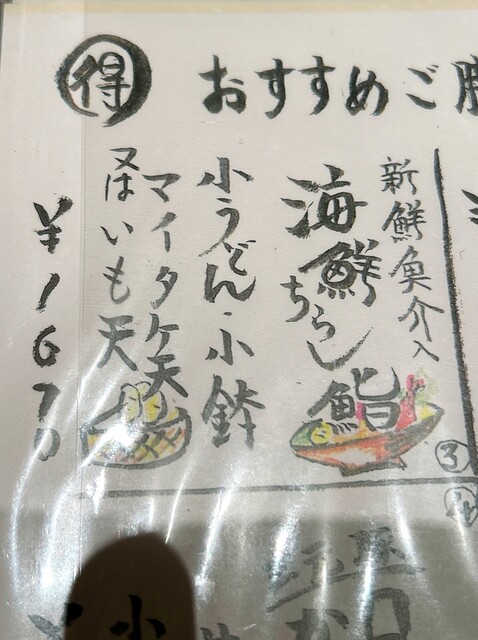 得 おすすめご
新鮮魚介入
海鮮ちらし鮨
小うどん・小鉢
マイタケ天
又はいも天
¥1670
③
④